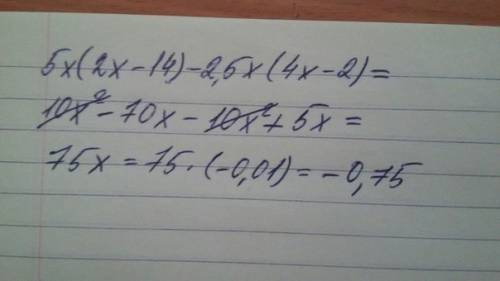 5x(2x-14)-2,5x(4x-2)=
10x²-70x-10x²+5x=
75x=75·(-0,01)=-0,75